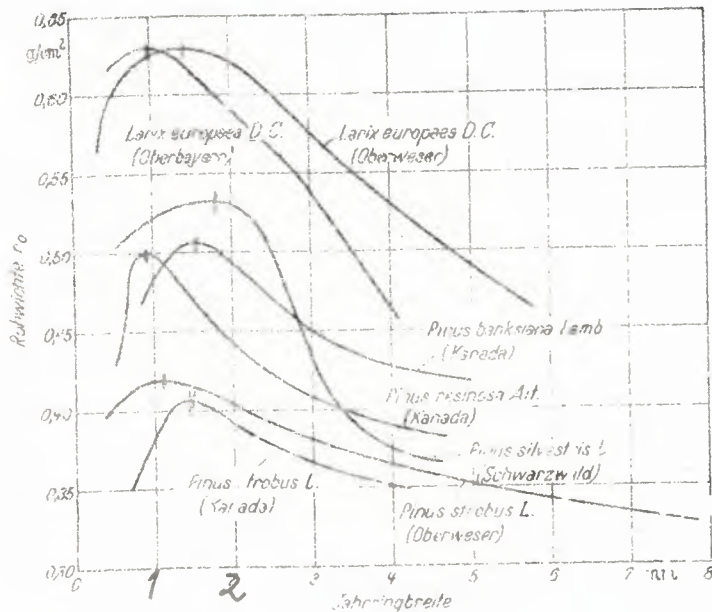 0,65
g/cm²
0,60
0,55
0,50
0,45
0,40
0,35
0,30
Rohwichte r₀
Larix europaea D.C.
(Oberbayern)
Larix europaea D.C.
(Oberweser)
Pinus banksiana Lamb
(Kanada)
Pinus resinosa Ait.
(Kanada)
Pinus silvestris L
(Schwarzwald)
Pinus strobus L.
(Kanada)
Pinus strobus L.
(Oberweser)
0 1 2 3 4 5 6 7 mm 8
Jahrringbreite